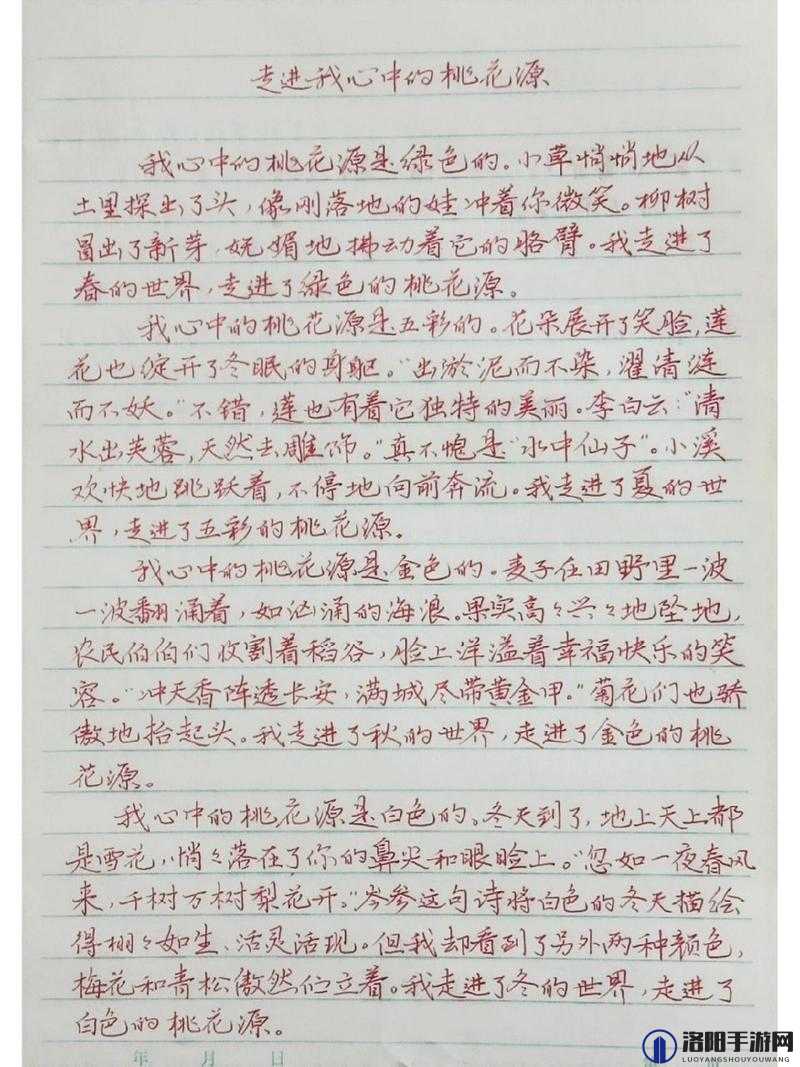 走进我心中的桃花源
我心中的桃花源是绿色的。小草悄悄地从
土里探出了头，像刚落地的娃冲着你微笑。柳树
冒出了新芽，妩媚地拂动着它的胳臂。我走进了
春的世界，走进了绿色的桃花源。
我心中的桃花源是五彩的。花朵展开了笑脸，莲
花也绽开了冬眠的身躯。“出淤泥而不染，濯清涟
而不妖。”不错，莲也有着它独特的美丽。李白云：“清
水出芙蓉，天然去雕饰。”真不愧是“水中仙子”。小溪
欢快地跳跃着，不停地向前奔流。我走进了夏的世
界，走进了五彩的桃花源。
我心中的桃花源是金色的。麦子在田野里一波
一波翻涌着，如汹涌的海浪。果实高々兴々地坠地，
农民伯伯们收割着稻谷，脸上洋溢着幸福快乐的笑
容。“冲天香阵透长安，满城尽带黄金甲。”菊花们也骄
傲地抬起头。我走进了秋的世界，走进了金色的桃
花源。
我心中的桃花源是白色的。冬天到了，地上天上都
是雪花，悄々落在了你的鼻尖和眼睑上。“忽如一夜春风
来，千树万树梨花开。”岑参这句诗将白色的冬天描绘
得栩々如生、活灵活现。但我却看到了另外两种颜色，
梅花和青松傲然伫立着。我走进了冬的世界，走进了
白色的桃花源。
年 月 日
洛阳手游网
LUOYANGSHOUYOUWANG